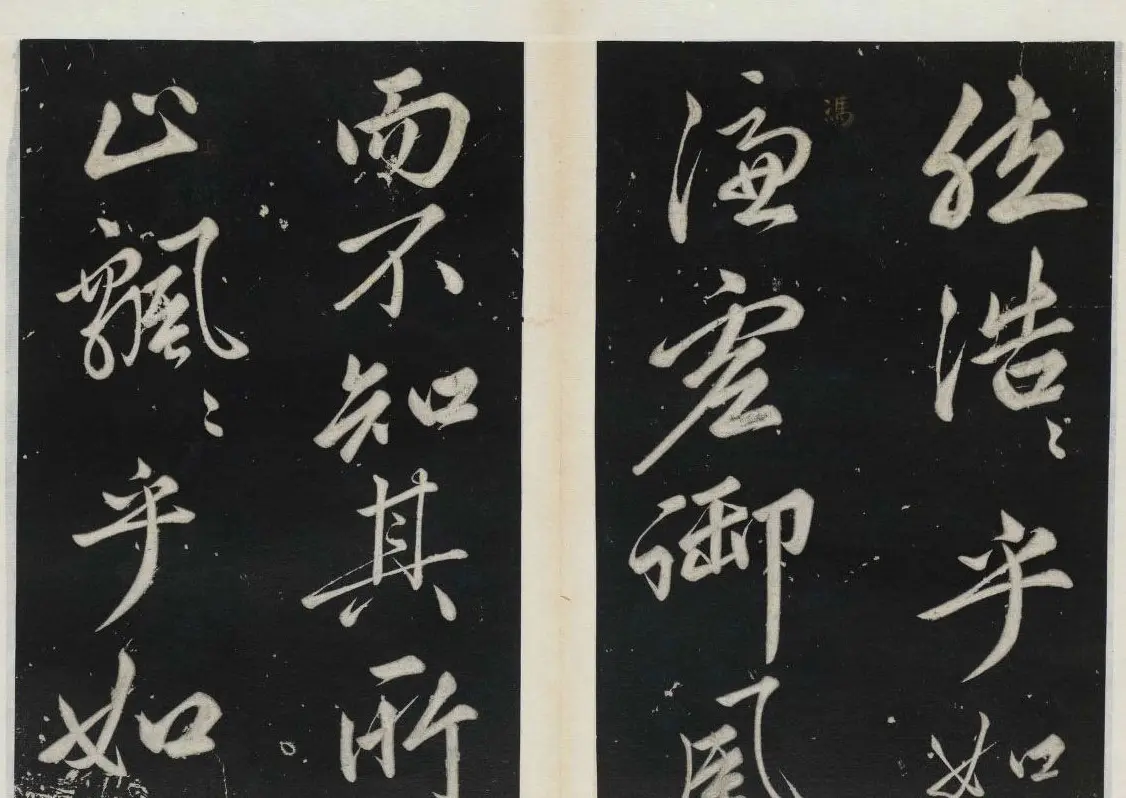 然浩〻乎如
馮
虛御風
而不知其所
止飄〻乎如